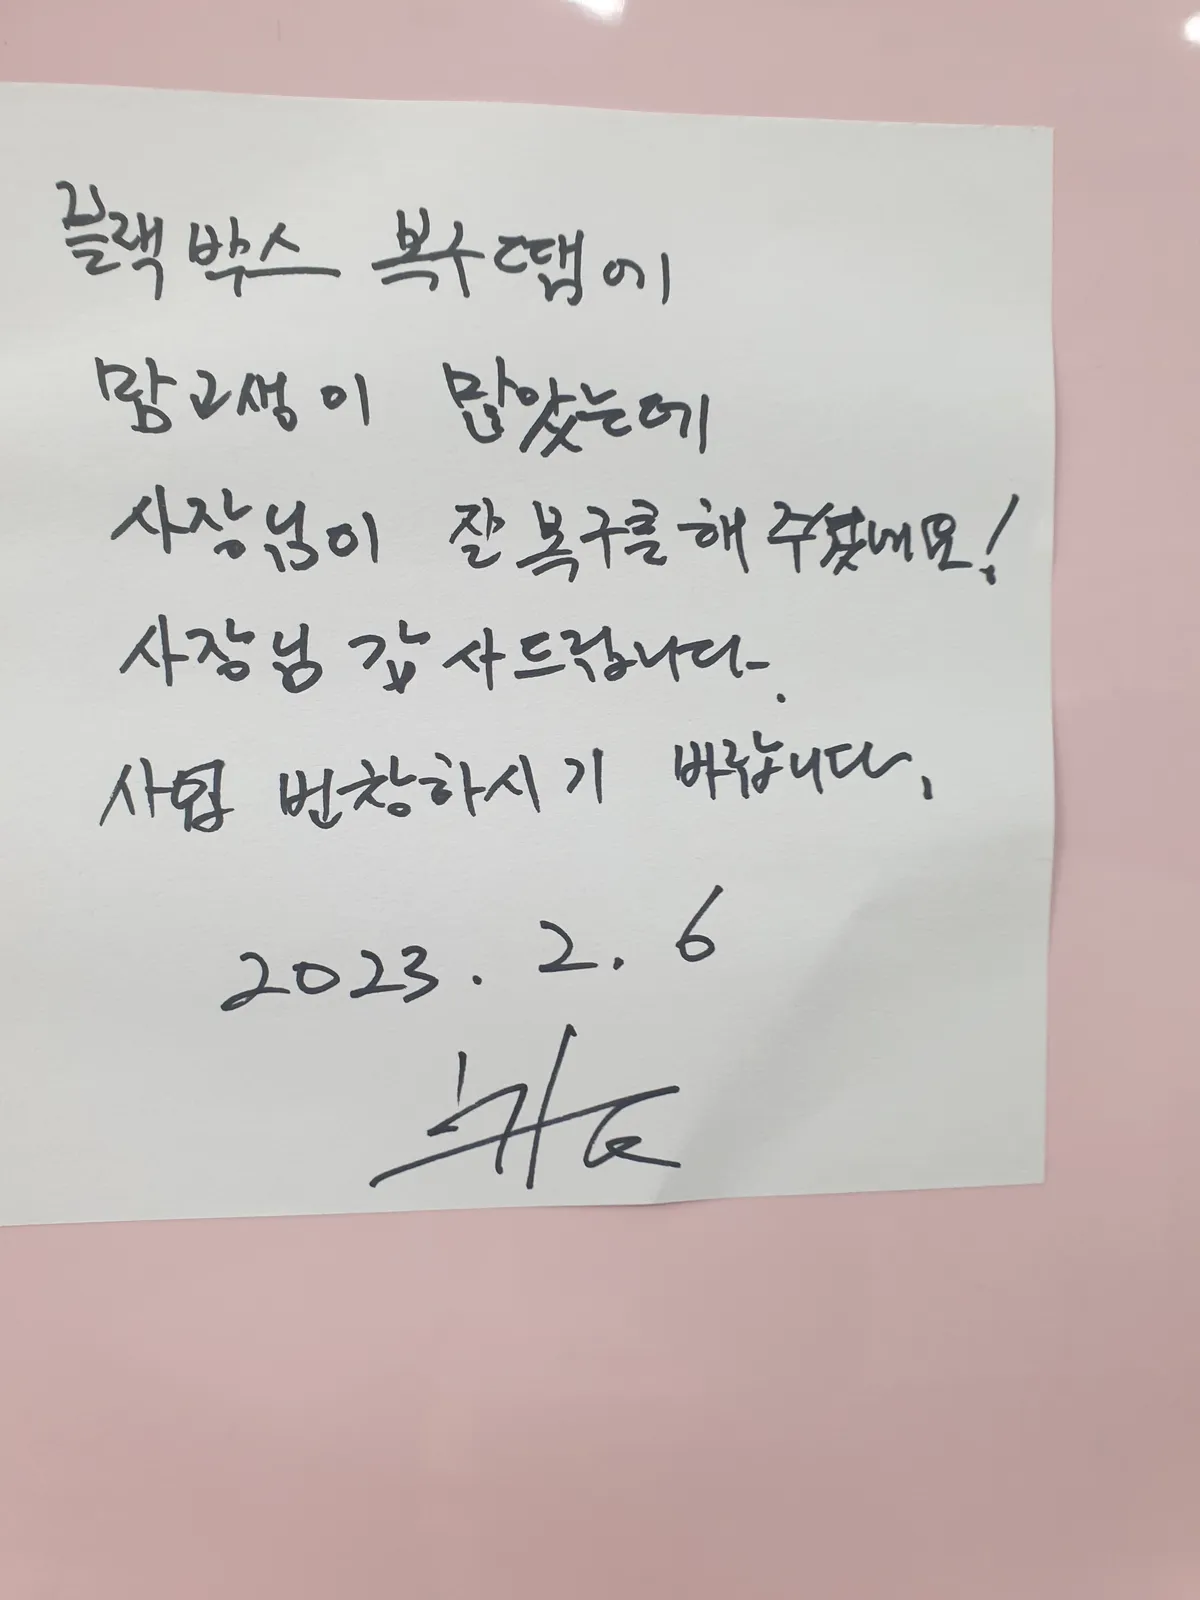 블랙박스 복구 땜에
맘고생이 많았는데
사장님이 잘 복구를 해 주셨네요!
사장님 감사드립니다.
사업 번창하시기 바랍니다.
2023. 2. 6